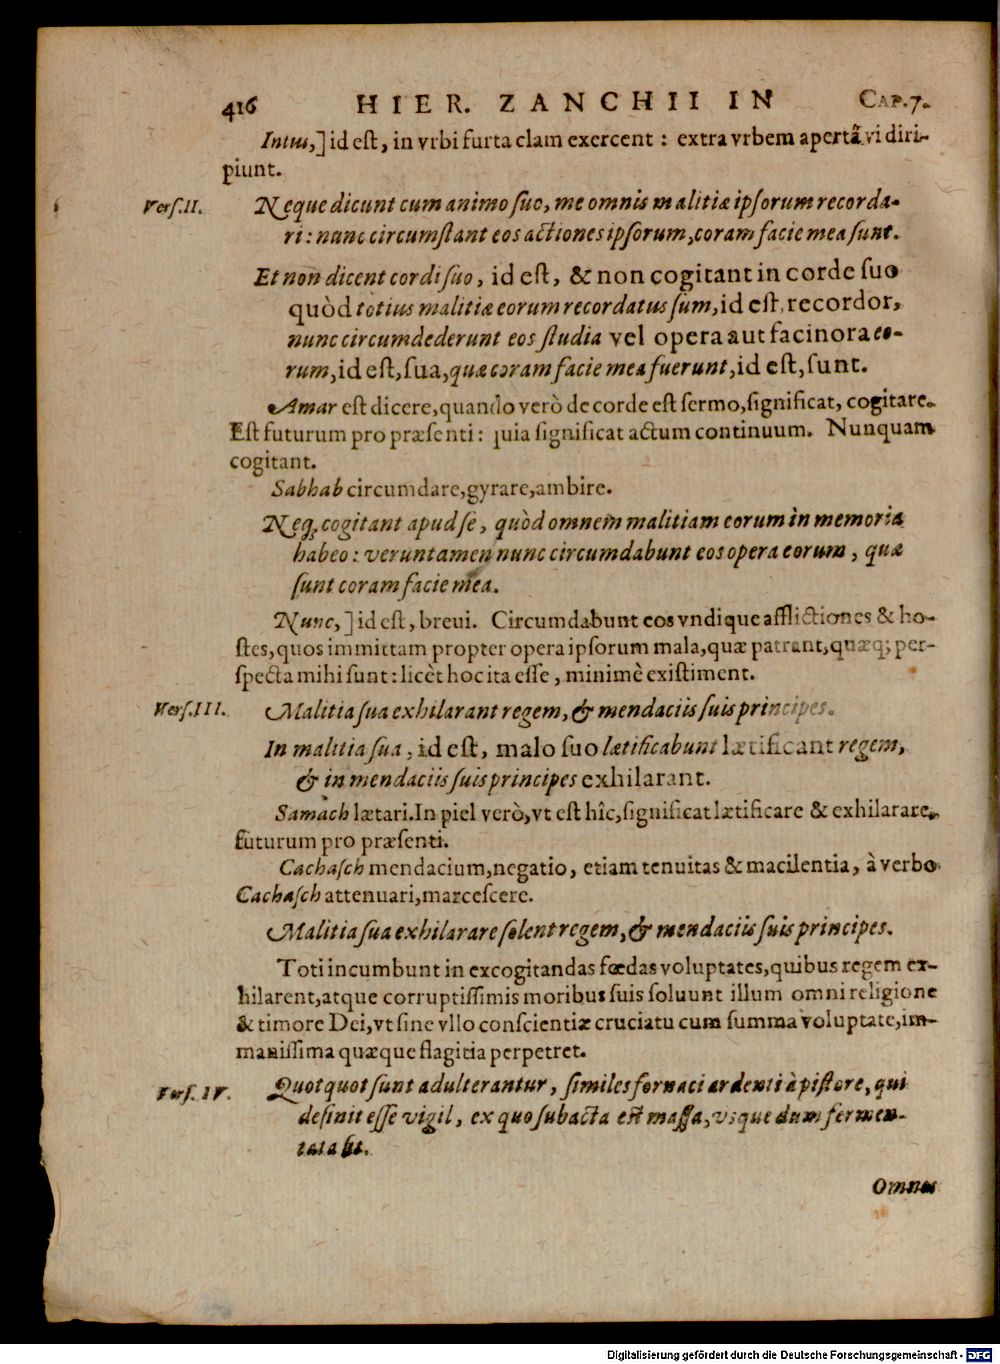 416 HIER. ZANCHII IN CAP.7.
Intus,] id eſt, in vrbi furta clam exercent : extra vrbem apertâ vi diri-
piunt.
Verſ.II. Neque dicunt cum animo ſuo, me omnis malitiæ ipſorum recorda-
ri: nunc circumſtant eos actiones ipſorum, coram facie mea ſunt.
Et non dicent cordi ſuo, id eſt, & non cogitant in corde ſuo
quòd totius malitiæ eorum recordatus ſum, id eſt, recordor,
nunc circumdederunt eos ſtudia vel opera aut facinora eo-
rum, id eſt, ſua, quæ coram facie mea fuerunt, id eſt, ſunt.
Amar eſt dicere, quando verò de corde eſt ſermo, ſignificat, cogitare.
Eſt futurum pro præſenti: quia ſignificat actum continuum. Nunquam
cogitant.
Sabhab circumdare, gyrare, ambire.
Neq; cogitant apud ſe, quòd omnem malitiam eorum in memoria
habeo: veruntamen nunc circumdabunt eos opera eorum, quæ
ſunt coram facie mea.
Nunc,] id eſt, breui. Circumdabunt eos vndique afflictiones & ho-
ſtes, quos immittam propter opera ipſorum mala, quæ patrant, quæq; per-
ſpecta mihi ſunt: licèt hoc ita eſſe, minimè exiſtiment.
Verſ.III. Malitia ſua exhilarant regem, & mendaciis ſuis principes.
In malitia ſua, id eſt, malo ſuo lætificabunt lætificant regem,
& in mendaciis ſuis principes exhilarant.
Samach lætari. In piel verò, vt eſt hîc, ſignificat lætificare & exhilarare,
futurum pro præſenti.
Cachaſch mendacium, negatio, etiam tenuitas & macilentia, à verbo
Cachaſch attenuari, marceſcere.
Malitia ſua exhilarare ſolent regem, & mendaciis ſuis principes.
Toti incumbunt in excogitandas fœdas voluptates, quibus regem ex-
hilarent, atque corruptiſſimis moribus ſuis ſoluunt illum omni religione
& timore Dei, vt ſine vllo conſcientiæ cruciatu cum ſumma voluptate, im-
maniſſima quæque flagitia perpetret.
Verſ. IV. Quotquot ſunt adulterantur, ſimiles fornaci ardenti à piſtore, qui
deſinit eſſe vigil, ex quo ſubacta eſt maſſa, vſque dum fermen-
tata ſit.
Omnes
Digitalisierung gefördert durch die Deutsche Forschungsgemeinschaft - DFG